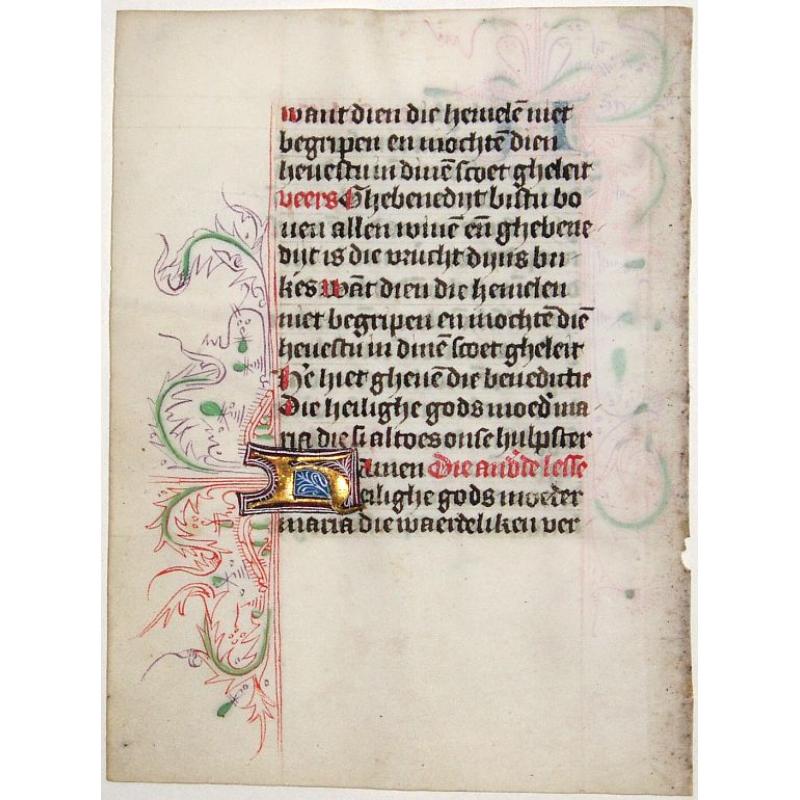 want dien die hemelē niet
begripen en mochtē dien
hevestu in dinē scoet gheleit
veers Ghebenedijt bistu bo
uen allen wiuē eñ ghebene
dijt is die vrucht dijns bu
kes want dien die hemelen
niet begripen en mochtē diē
hevestu in dinē scoet gheleit
Hē hiet gheuē die benedictie
Die heilighe gods moed̛ ma
ria die si altoes onse hulpster
Amen Die and̛de lesse
Heilighe gods moeder
maria die waerdeliken ver